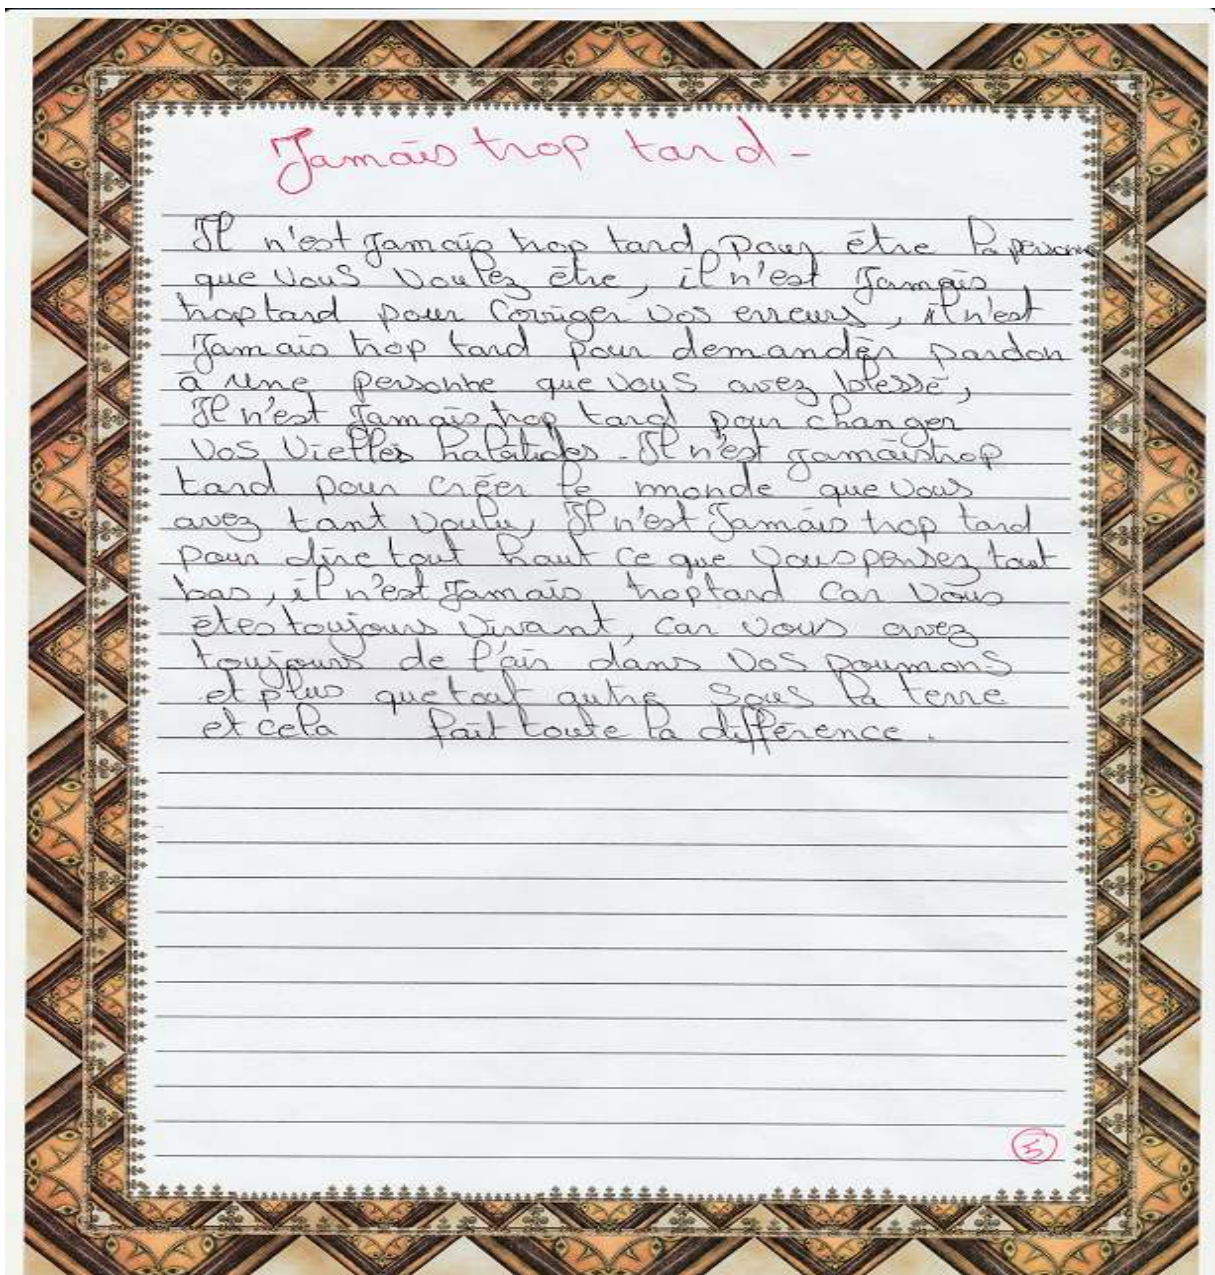 Jamais trop tard -
Il n'est Jamais trop tard pour être la personne
que vous voulez être, il n'est Jamais
trop tard pour Corriger vos erreurs, il n'est
Jamais trop tard pour demander pardon
à une personne que vous avez blessé,
Il n'est Jamais trop tard pour changer
vos vielles habitudes. Il n'est Jamais trop
tard pour créer le monde que vous
avez tant voulu, Il n'est Jamais trop tard
pour dire tout haut ce que vous pensez tout
bas, il n'est Jamais trop tard Car vous
êtes toujours vivant, Car vous avez
toujours de l'air dans vos poumons
et plus que tout autre sous la terre
et cela fait toute la différence.
5